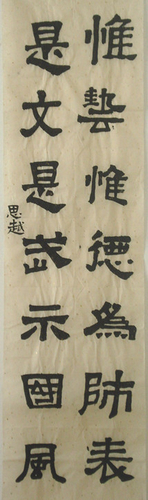 惟藝惟德為師表
是文是武示國風
思越